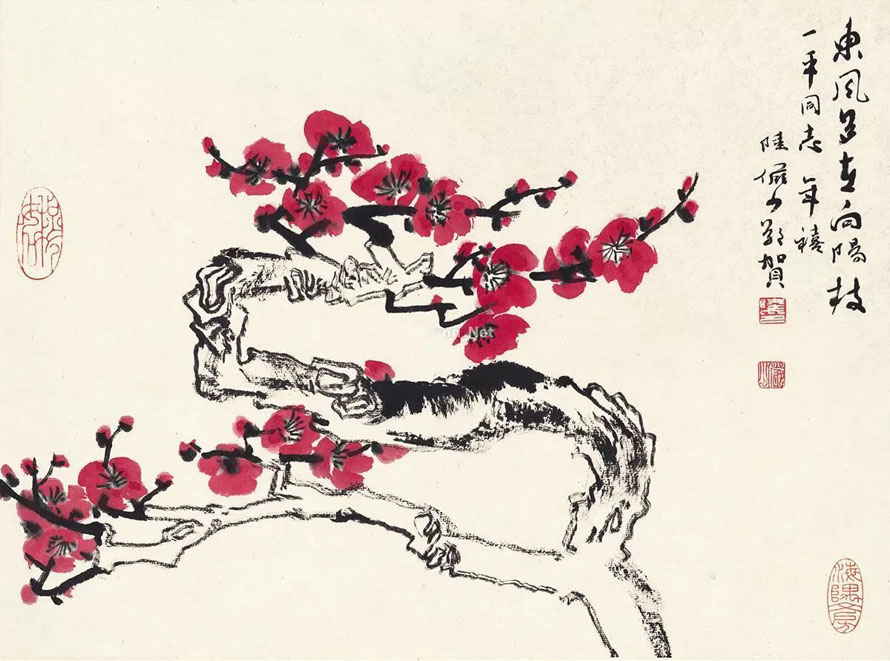 東風在向陽枝
一平同志年禧
陸儼少敬賀
海隅
Net